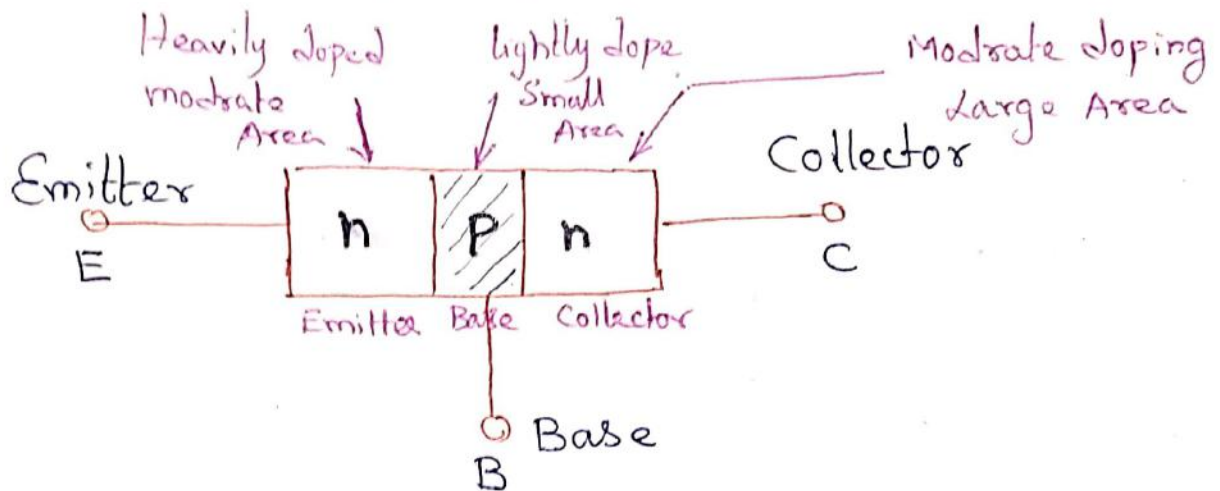 Heavily doped
modrate
Area
lightly dope
Small
Area
Modrate doping
Large Area
Emitter
E
n
P
n
Collector
C
Emitter Base Collector
Base
B